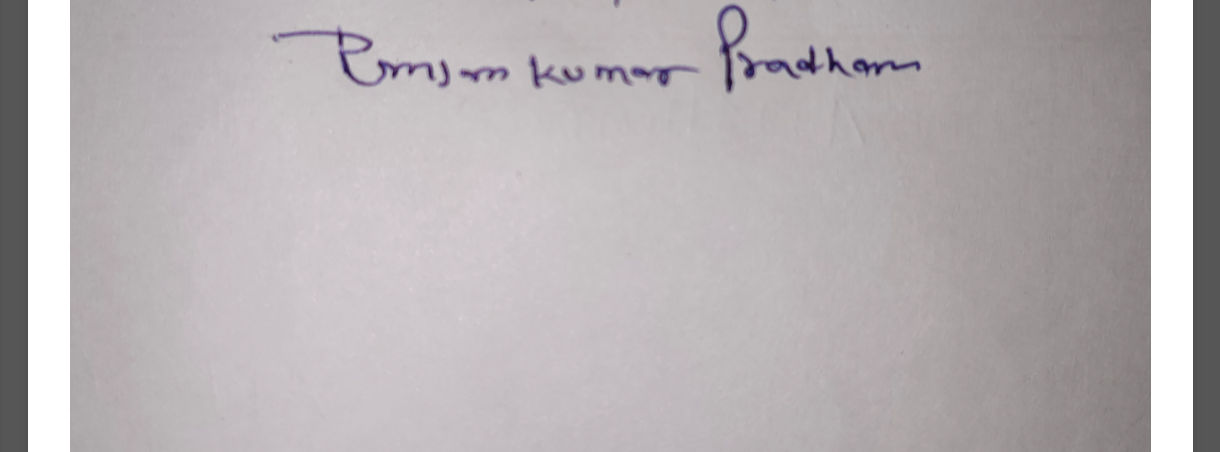 Ranjan kumar Pradhan